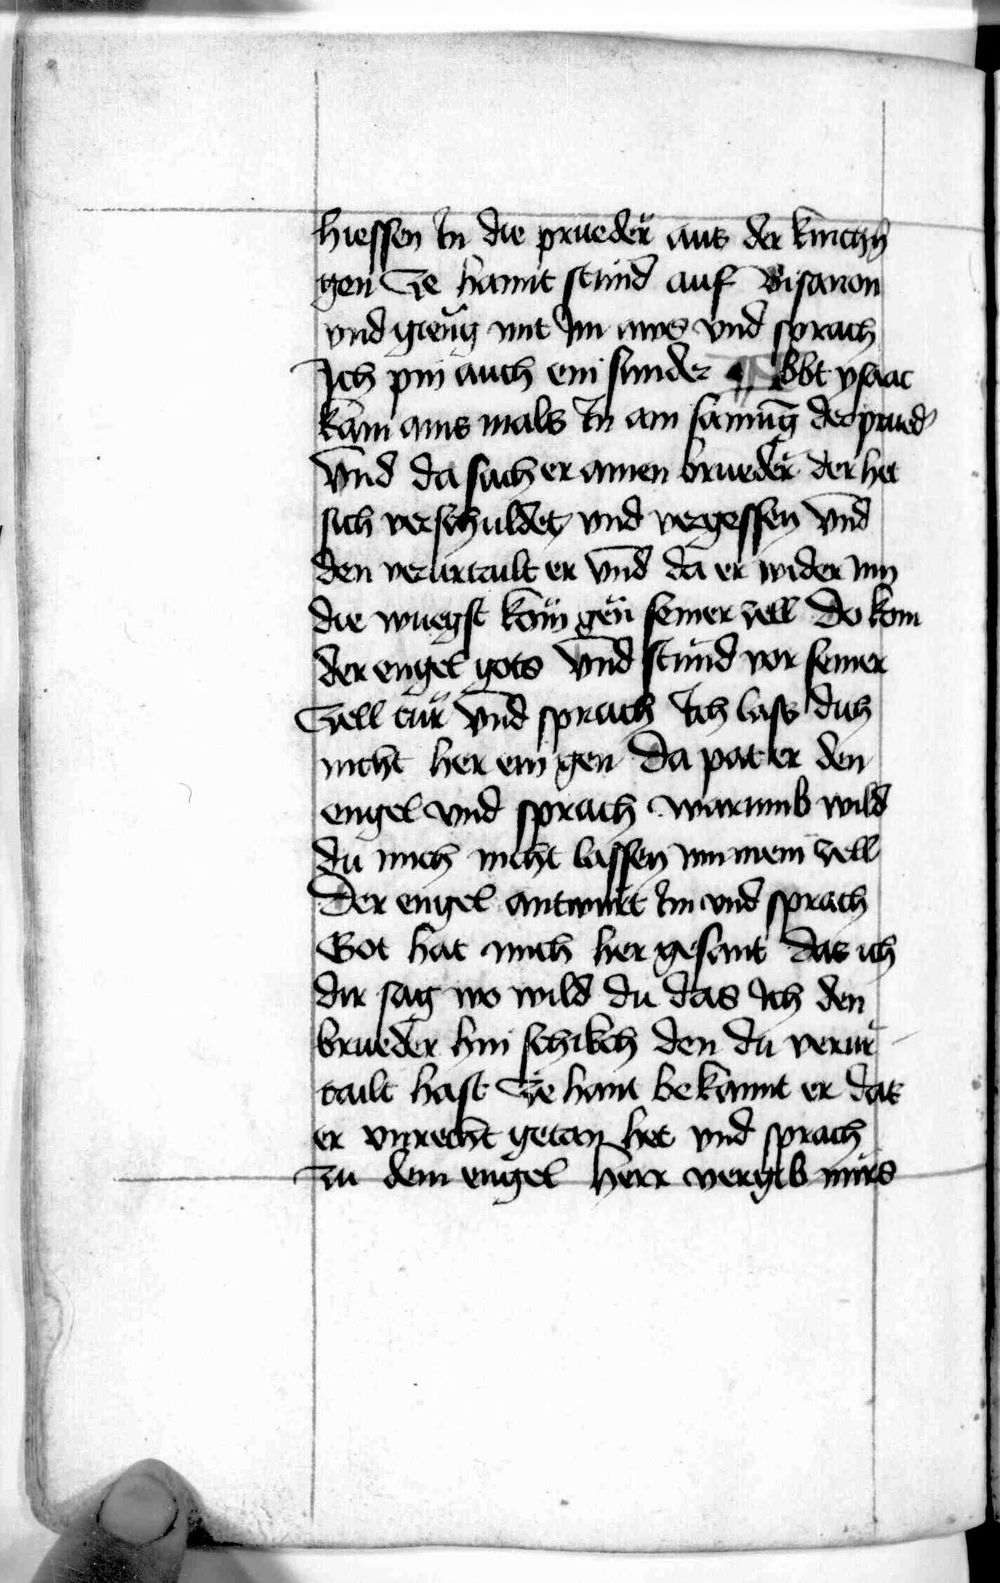 hiessen In die prueder aus der kirichn̄
gen Ze hannt stund auf Bisarion
vnd gieng mit Im aws vnd sprach
Ich pin auch ein sunder ¶ Abbt ysaac
kam ains mals In ain samnūg der prued̓
Vnd da sach er ainen brueder der het
sich verschuldet vnd vergessen Vnd
den verurtailt er Vnd da er wider inn
die wuegst kom gen seiner zell Do kom
der engel gots Vnd stund vor seiner
Zell tür Vnd sprach Ich lass dich
nicht her ein gen Da pat er den
engel vnd sprach warumb wild
du mich nicht lassen inn mein zell
Der engel antwurt Im vnd sprach
Got hat mich her gesant das ich
dir sag wo wild du das Ich den
brueder hin schikch den du verur
tailt hast Ze hant bekannt er das
er vnrecht getan het vnd sprach
zu dem engel Herr vergib mirs